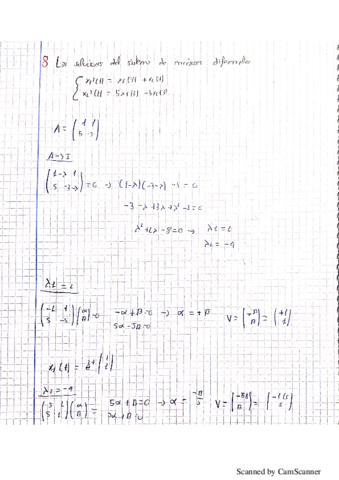 8 Las soluciones del sistema de ecuaciones diferenciales
x₁'(t) = x₁(t) + x₂(t)
x₂'(t) = 5x₁(t) - 3x₂(t)
A = (1 1
5 -3)
A-λI
(1-λ 1
5 -3-λ) = 0 → (1-λ)(-3-λ) - 5 = 0
-3 - λ + 3λ + λ² - 5 = 0
λ² + 2λ - 8 = 0 → λ₁ = 2
λ₂ = -4
λ₁ = 2
(-1 1
5 -5)(α
β) = 0 -α + β = 0 → α = +β V = (+β
β) = (+1
1)
5α - 5β = 0
x₁(t) = e²ᵗ (1
1)
λ₂ = -4
(5 1
5 1)(α
β) = 5α + β = 0 → α = -β/5 V = (-β/5
β) = (-1/5
1)
5α + β = 0
Scanned by CamScanner